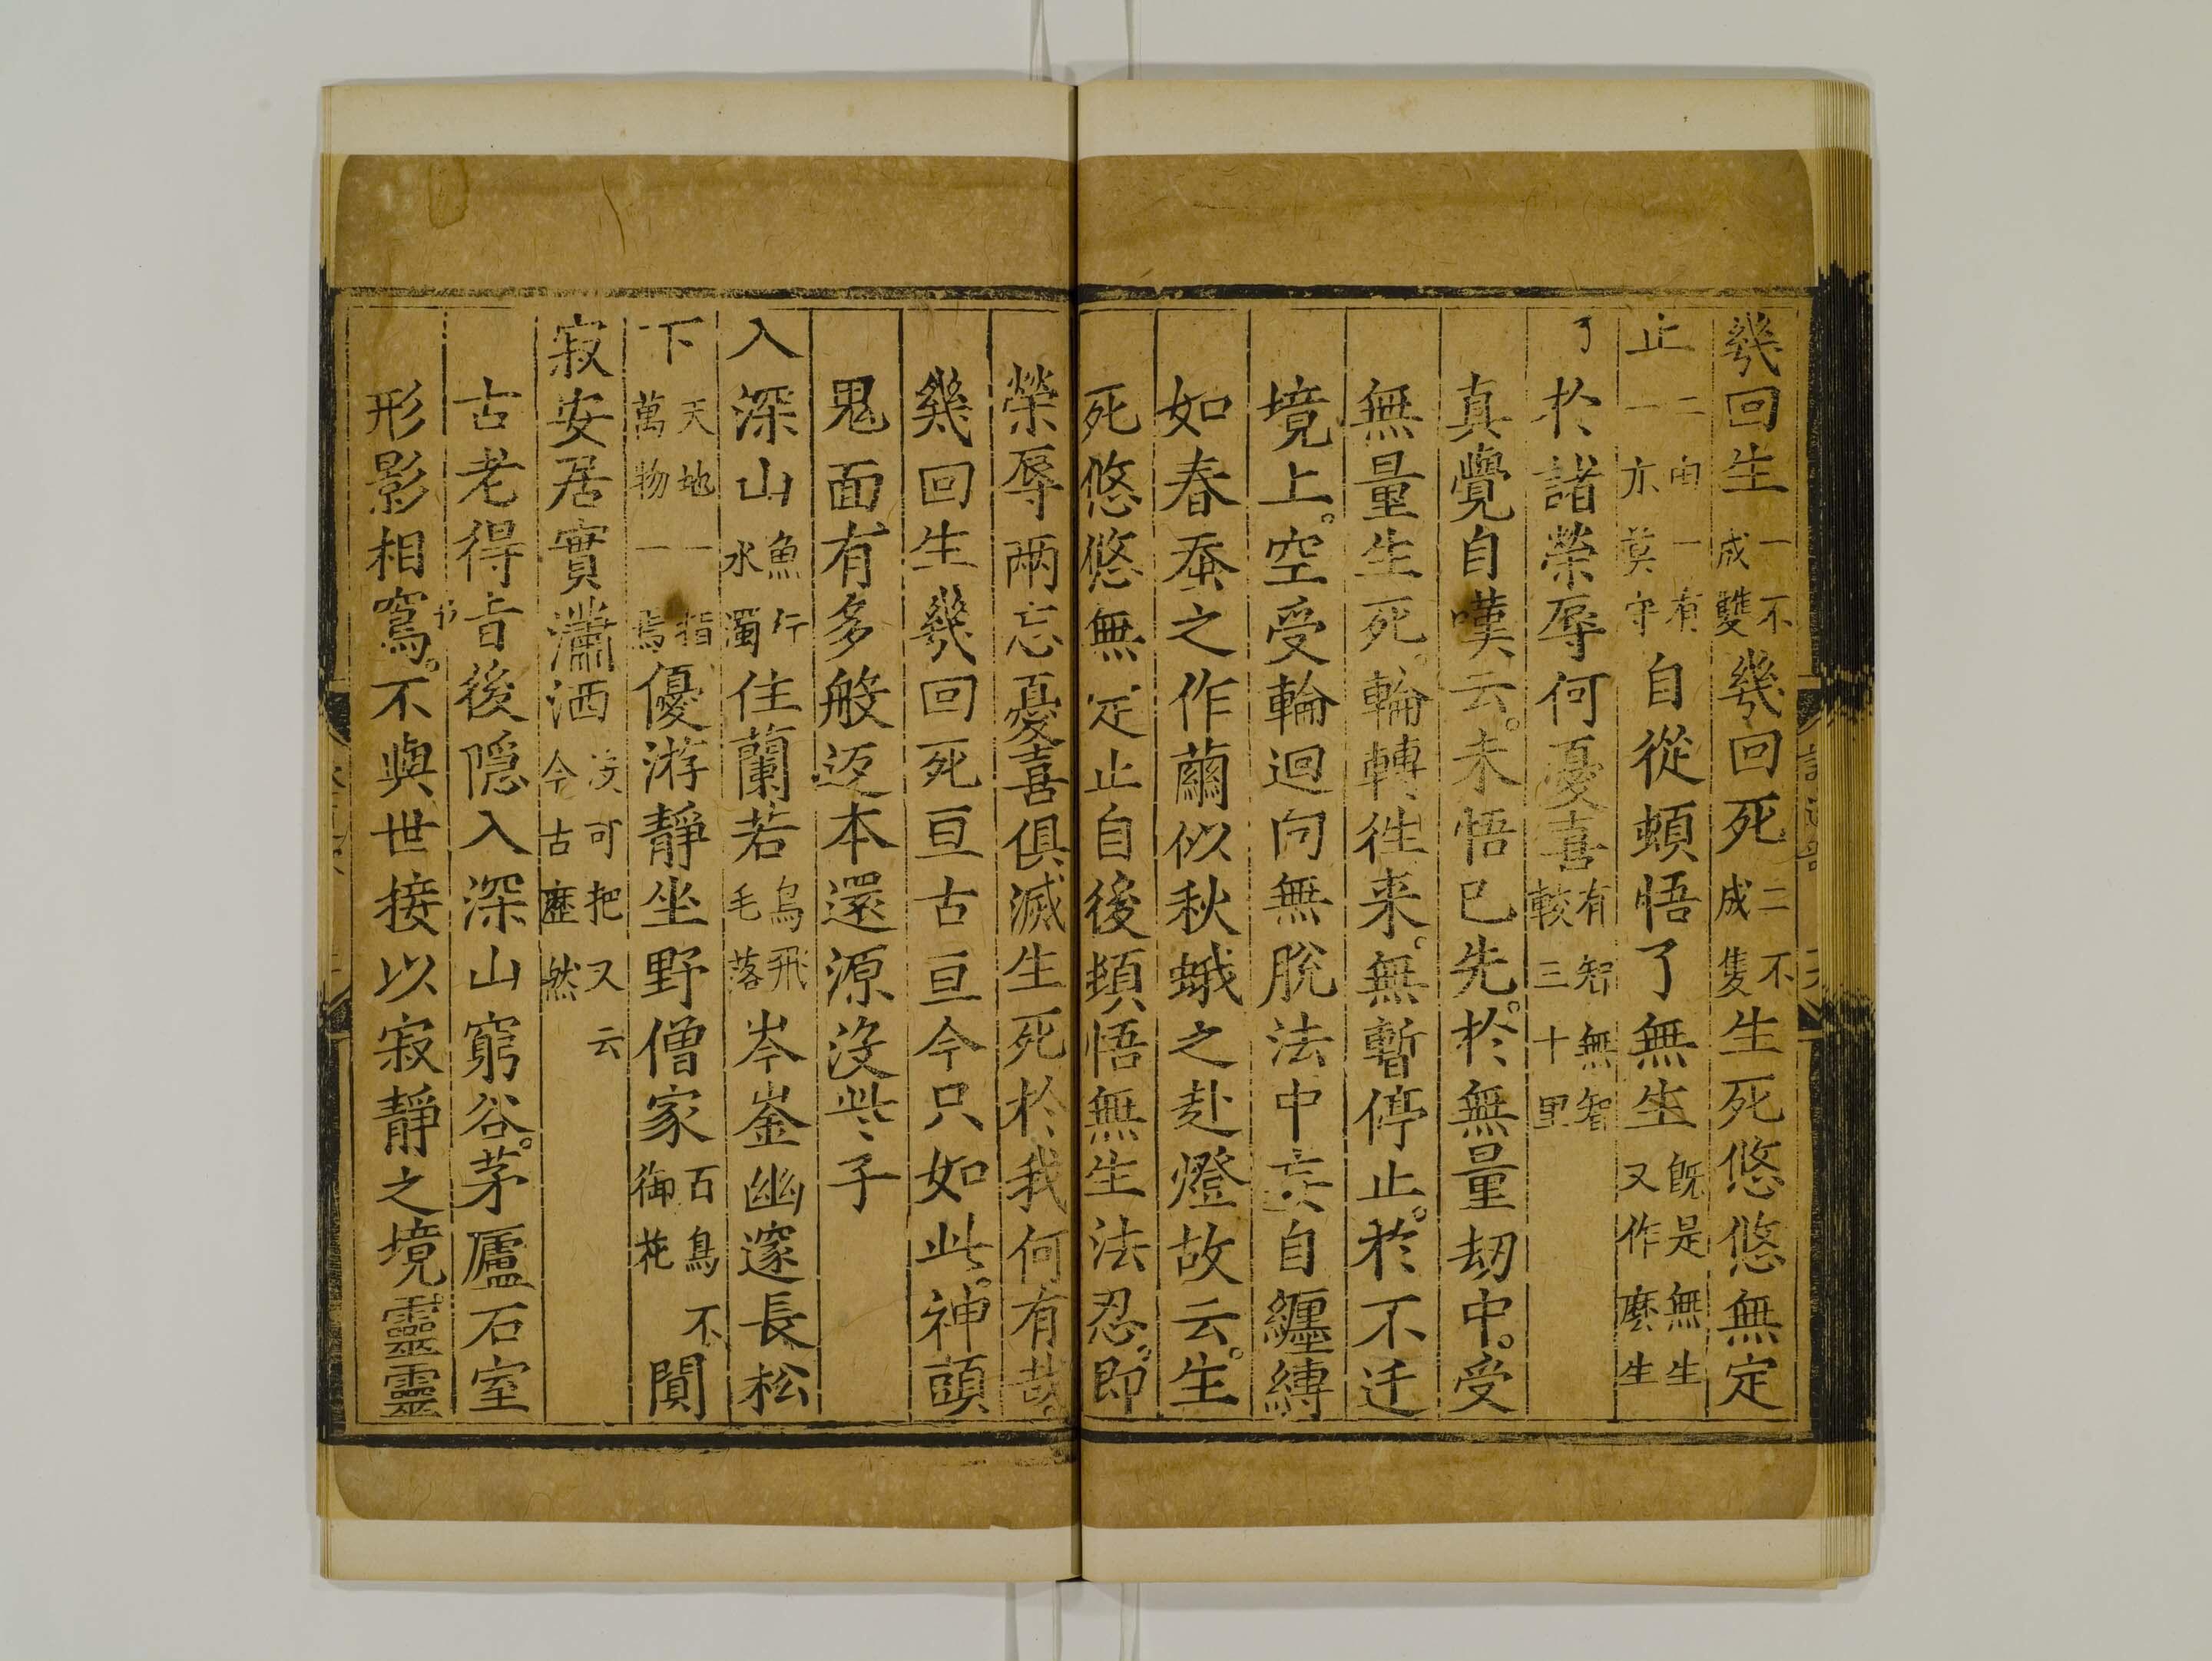 幾回生一不成雙幾回死二不成隻生死悠悠無定
止二由一有一亦莫守自從頓悟了無生旣是無生又作麽生
了於諸榮辱何憂喜有智無智較三十里
真覺自嘆云未悟已先於無量劫中受
無量生死輪轉徃来無暫停止於不迁
境上空受輪迴向無脫法中妄自纏縛
如春蚕之作繭似秋蛾之赴燈故云生
死悠悠無定止自後頓悟無生法忍即
榮辱兩忘憂喜俱滅生死於我何有哉
幾回生幾回死亘古亘今只如此神頭
鬼面有多般返本還源沒些子
入深山魚行水濁住蘭若鳥飛毛落岑崟幽邃長松
下天地一指萬物一馬優游靜坐野僧家百鳥不御花闃
寂安居實瀟洒沒可把又云今古歷然
古老得旨後隠入深山窮谷茅廬石室
形影相寫不與世接以寂靜之境靈靈